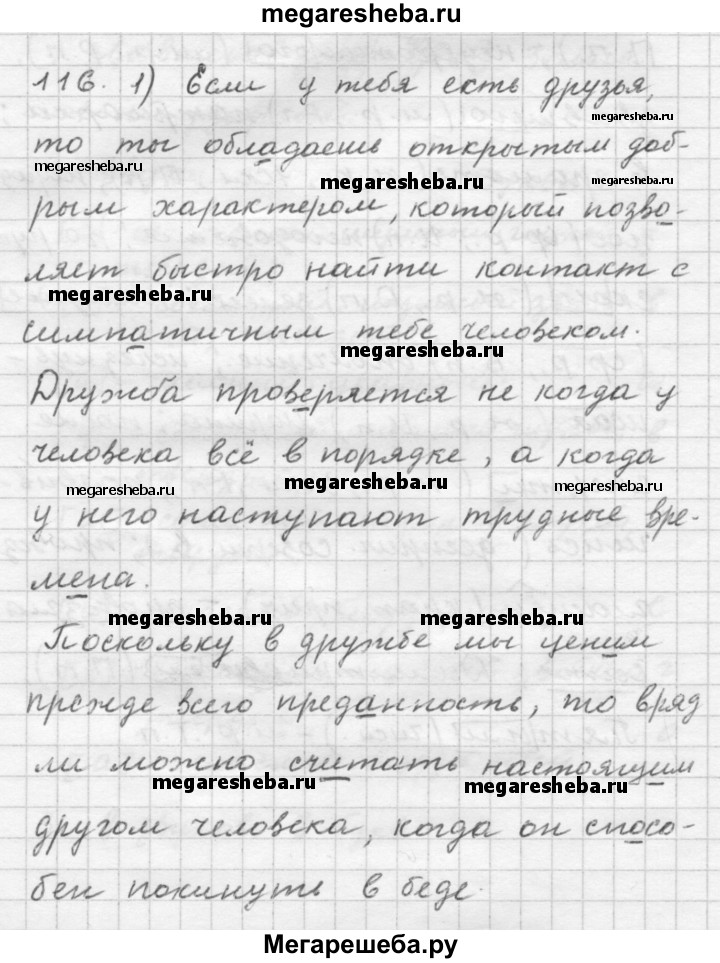 megaresheba.ru
116. 1) Если у тебя есть друзья,
megaresheba.ru
то ты обладаешь открытым доб-
megaresheba.ru megaresheba.ru megaresheba.ru
рым характером, который позво-
ляет быстро найти контакт с
megaresheba.ru
симпатичным тебе человеком.
megaresheba.ru
Дружба проверяется не когда у
человека всё в порядке, а когда
megaresheba.ru megaresheba.ru megaresheba.ru
у него наступают трудные вре-
мена.
megaresheba.ru megaresheba.ru
Поскольку в дружбе мы ценим
прежде всего преданность, то вряд
ли можно считать настоящим
megaresheba.ru megaresheba.ru
другом человека, когда он спосо-
бен покинуть в беде.
Мегарешеба.ру